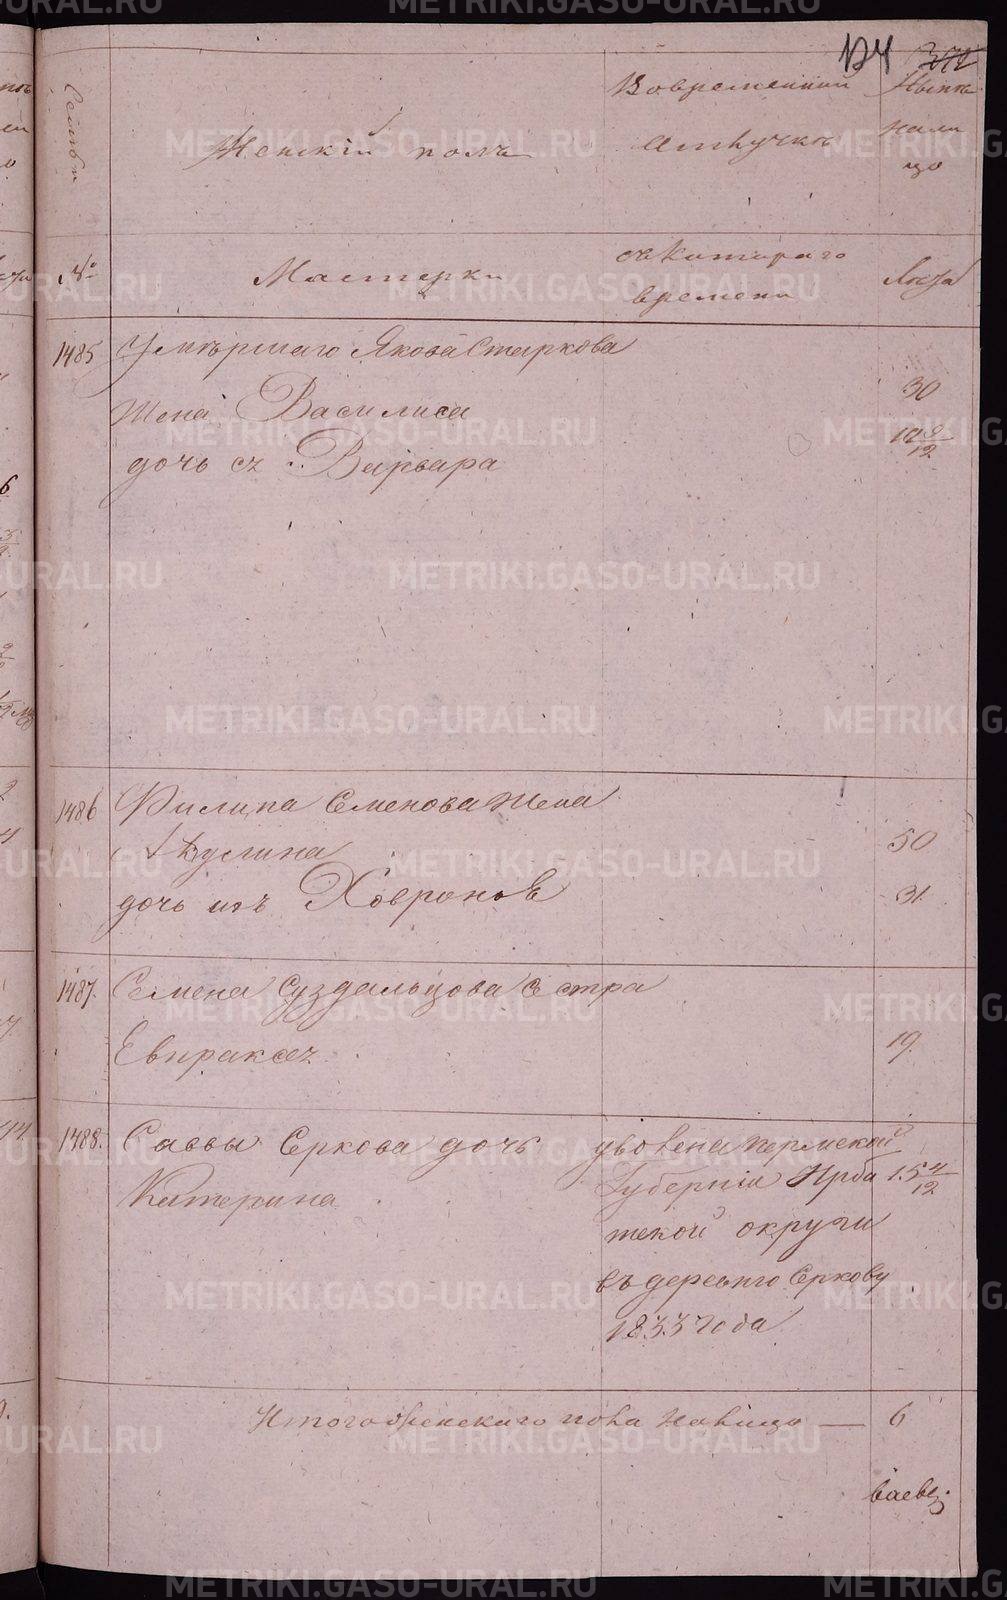 174 372
Семьи
Женскій полъ
Во временной
отлучкѣ
Нынѣ
нали
цо
№
Мастерки
съ котораго
времени
Лета
1485 Умѣршаго Якова Старкова
Жена Василиса 30
дочь ее Варвара 12 9/12
1486 Филипа Семенова жена
Акулина 50
дочь ихъ Ховрония 31.
1487. Семена Суздальцова сестра
Евпраксея 19.
1488. Саввы Еркова дочь
Катерина
увезена Пермской
Губерніи Ирби 15 4/12
тской округи
въ деревню Еркову
1833 года
Итого женскаго пола налицо — 6
METRIKI.GASO-URAL.RU